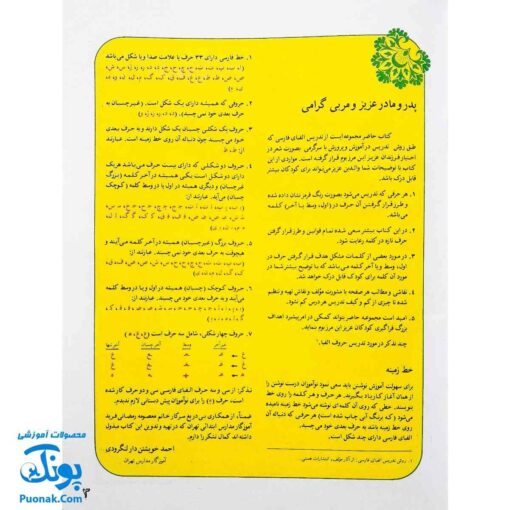 پدر و مادر عزیز و مربی گرامی
کتاب حاضر مجموعه‌ایست از تدریس الفبای فارسی که
طبق روش تدریس در آموزش و پرورش با سرگرمی بصورت شعر در
اختیار فرزندان عزیز این مرز و بوم قرار گرفته است. مواردی از این
کتاب با توضیحات شما والدین عزیز می‌تواند برای کودکان بیشتر
قابل درک باشد.
۱. هر حرفی که تدریس می‌شود بصورت رنگ قرمز نشان داده شده
و طرز قرار گرفتن آن حرف در (اول، وسط یا آخر) کلمه
می‌باشد.
۲. در این کتاب بیشتر سعی شده تمام قوانین و طرز قرار گرفتن
حرف تازه در کلمه رعایت شود.
۳. در مورد بعضی از کلمات مشکل هدف قرار گرفتن حرف در
اول، وسط و یا آخر کلمه می‌باشد که با توضیح بیشتر شما در
مورد آن کلمه برای کودک قابل درک خواهد شد.
۴. نقاشی و مطالب هر صفحه با مشورت مؤلف و نقاش تهیه و تنظیم
شده تا چیزی از کم و کیف تدریس هر درس کم نشود.
۵. امید است مجموعه حاضر بتواند کمکی در امر پیشبرد اهداف
بزرگ فراگیری کودکان عزیز این مرز و بوم بنماید.
چند تذکر در مورد تدریس حروف الفبا.¹
خط زمینه
برای سهولت آموزش نوشتن باید سعی نمود نوآموزان درست نوشتن را
از همان آغاز کار یاد بگیرند. هر حرف و هر کلمه را روی خط
بنویسند. خطی که روی آن کلمه‌ای نوشته می‌شود خط زمینه نامیده
می‌شود و که برنگ آبی چاپ شده است) هر حرفی که دنباله آن
روی خط زمینه است به حرف بعدی خود می‌چسبد.
الفبای فارسی دارای چند شکل است.
۱. روش تدریس الفبای فارسی، از آثار مؤلف، انتشارات
۱. خط فارسی دارای ۳۳ حرف یا علامت صدا و یا شکل می‌باشد
۲. حروفی که همیشه دارای یک شکل است. (غیر چسبان به
حرف بعدی خود نمی‌چسبد).
۳. حروف یک شکلی چسبان یک شکل دارند و به حرف بعدی
خود می‌چسبند چون دنباله آن روی خط زمینه است. عبارتند
از: ط، ظ
۴. حروف دو شکلی که دارای بیست حرف می‌باشد هر یک
دارای دو شکل است یکی همیشه در آخر کلمه (بزرگ
غیر چسبان) و دیگری همیشه در اول یا در وسط کلمه (کوچک
چسبان) می‌آید. عبارتند از:
۵. حروف بزرگ (غیر چسبان) همیشه در آخر کلمه می‌آیند و
به حرف بعدی خود نمی‌چسبند. عبارتند از:
۶. حروف کوچک (چسبان) همیشه در اول و یا در وسط کلمه
می‌آیند و به حرف بعدی خود می‌چسبند. عبارتند از:
۷. حروف چهار شکلی، شامل سه حرف است (ع، غ، ه)
تذکر! از سی و سه حرف الفبای فارسی سی و دو حرف کار شده
است، حرف (ء) را برای نوآموزان پیش دبستانی لازم ندیدیم.
ضمناً، از همکاری بی‌دریغ سرکار خانم معصومه رمضانی فرید
آموزگار مدارس ابتدائی تهران که در تهیه و تدوین این کتاب مبذول
داشته‌اند کمال تشکر را دارم.
احمد خویشتن‌دار لنگرودی
آموزگار مدارس تهران
محصولات آموزشی
پونک
Puonak.Com
۳